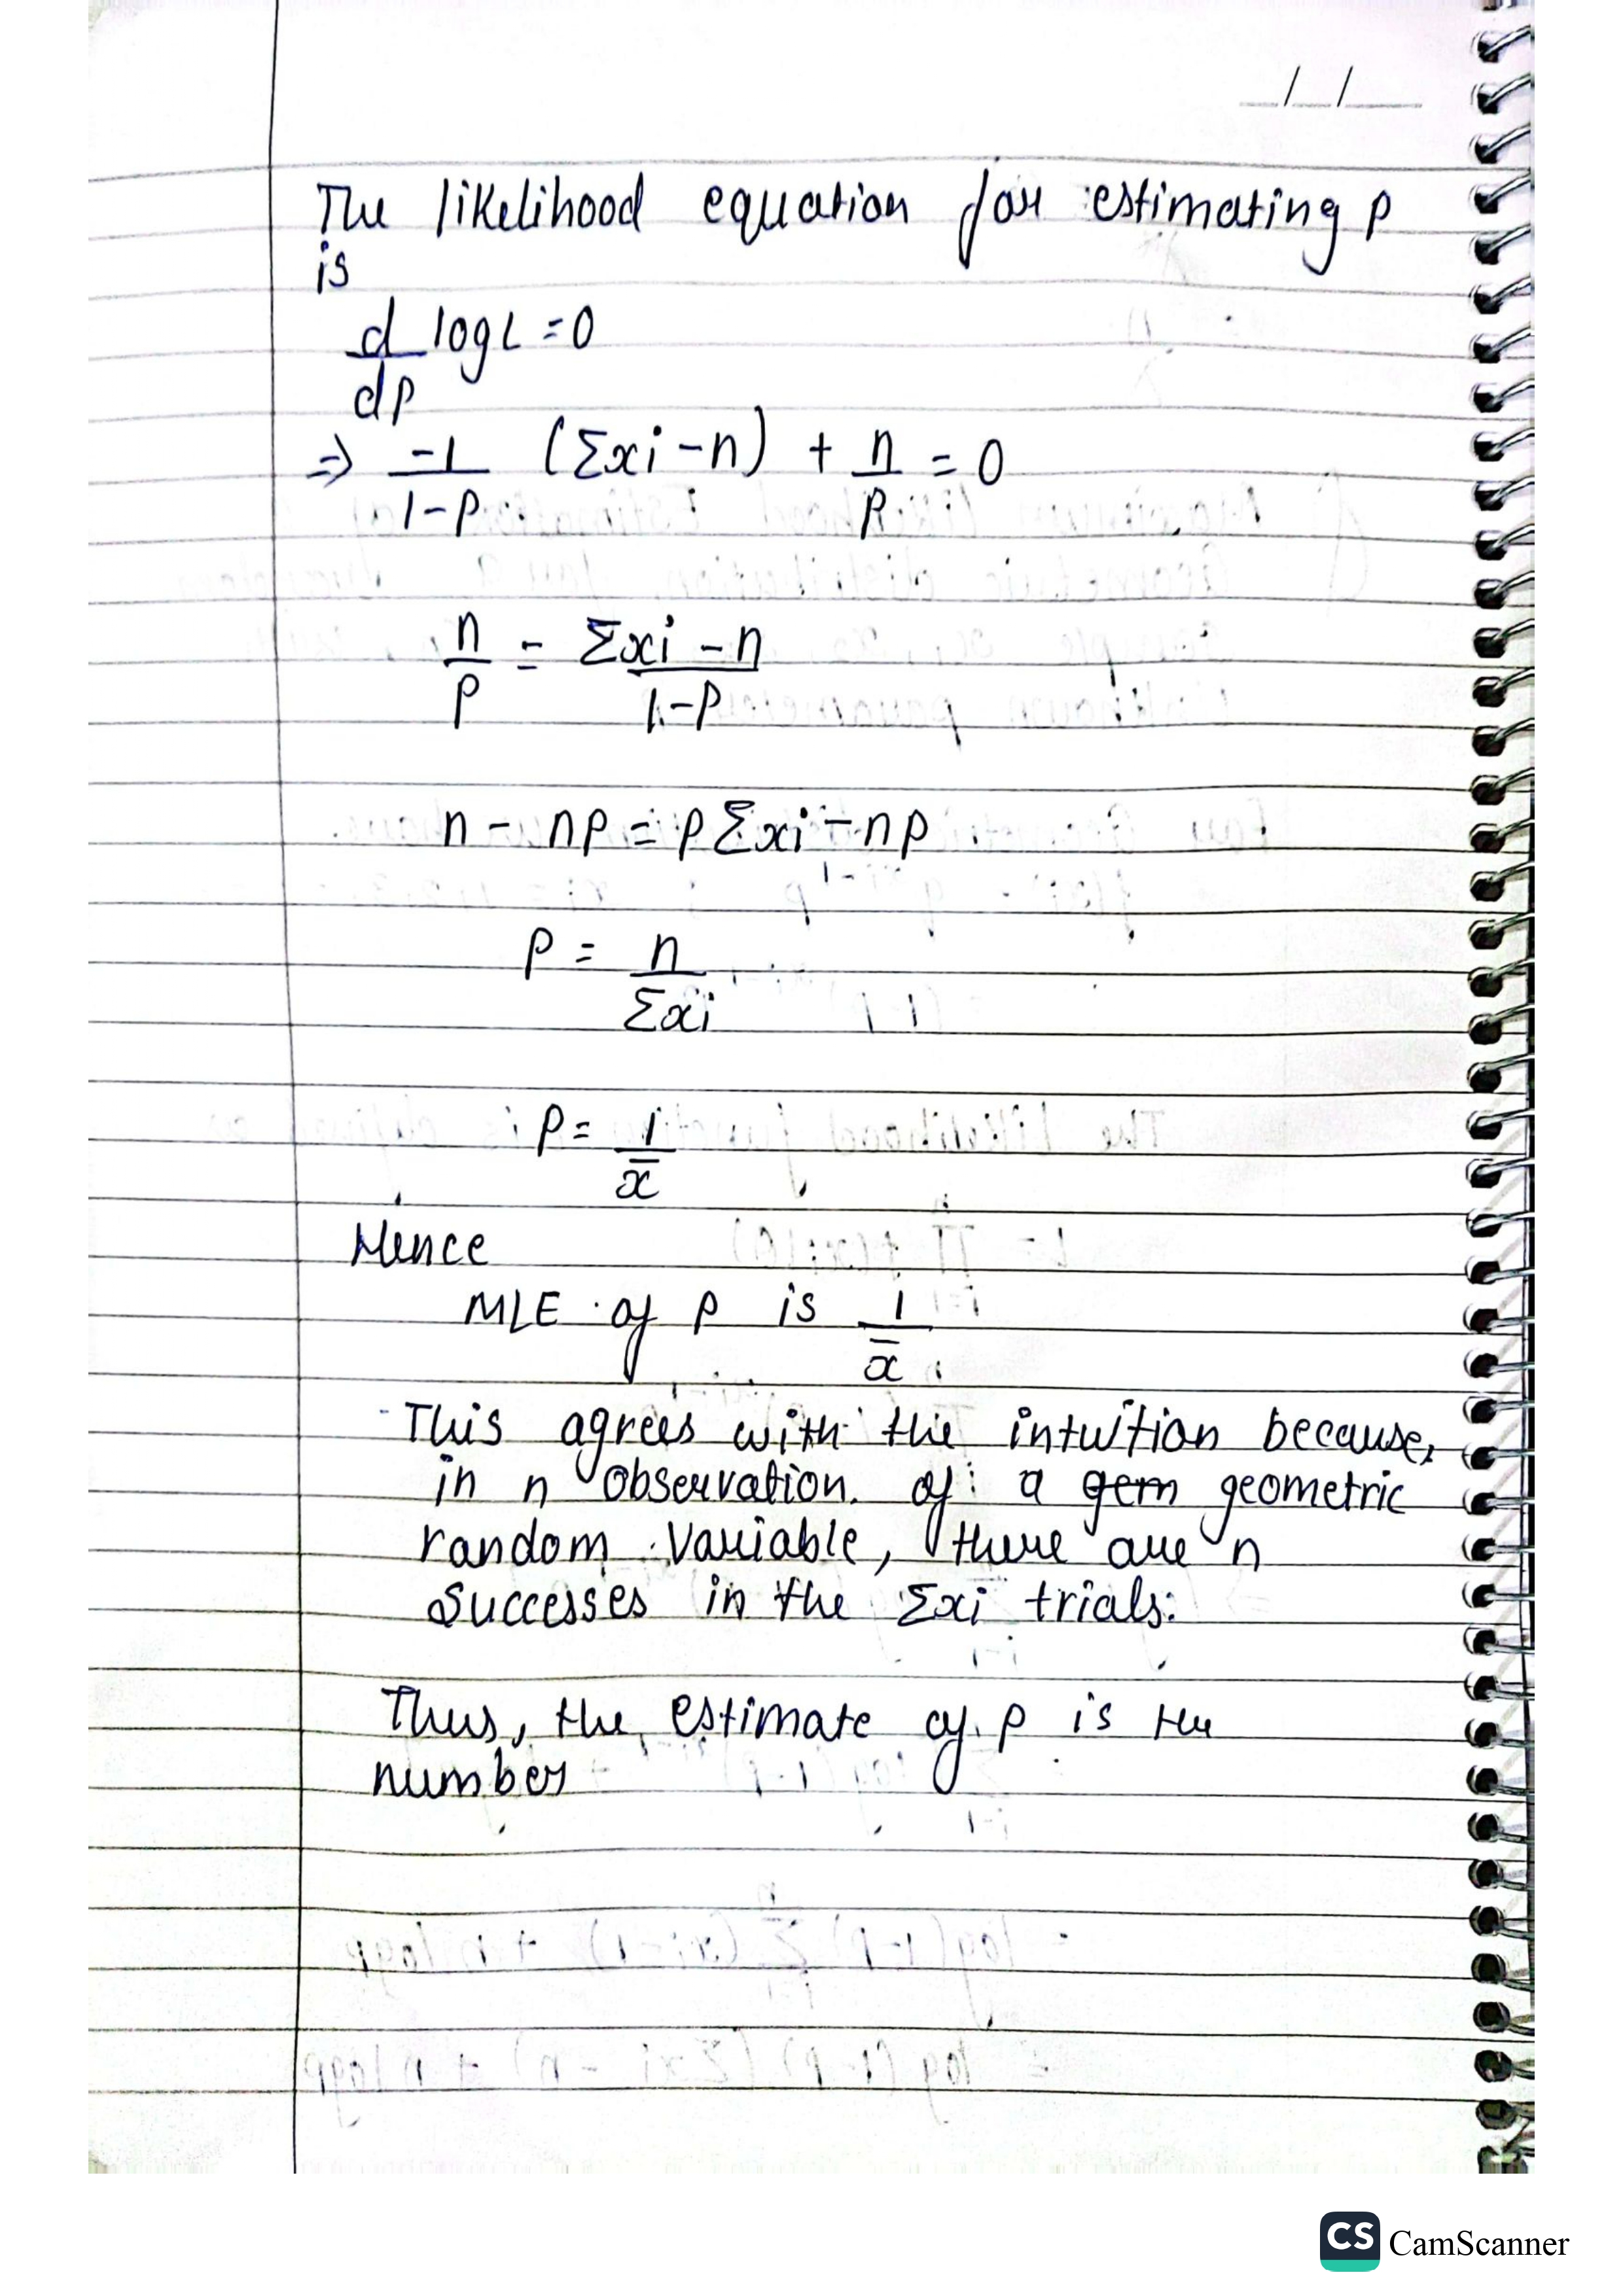 __/__/___
The likelihood equation for estimating p
is
d/dp log L = 0
⇒ -1/(1-p) (Σxi - n) + n/p = 0
n/p = Σxi - n/1-p
n - np = pΣxi - np
p = n/Σxi
p = 1/x̄
Hence
MLE of p is 1/x̄.
- This agrees with the intuition because,
in n observation. of a gem geometric
random variable, there are n
successes in the Σxi trials.
Thus, the estimate of p is the
number
CS CamScanner